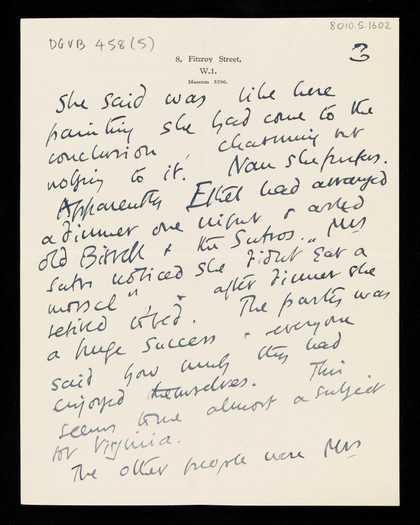 8010.5.1602
DGVB 458 (5)
3
8, Fitzroy Street,
W.1.
Museum
She said was like here
painting she had come to the
conclusion, charming but
nothing to it. Nan she prefers.
Apparently Ethel had arranged
a dinner one night & asked
old Birrell & the Sutros. "Mrs
Sutro noticed she didnt eat a
morsel" & after dinner she
retired to bed. The party was
a huge success & everyone
said how much they had
enjoyed themselves. This
seems to me almost a subject
for Virginia.
The other people were Mrs